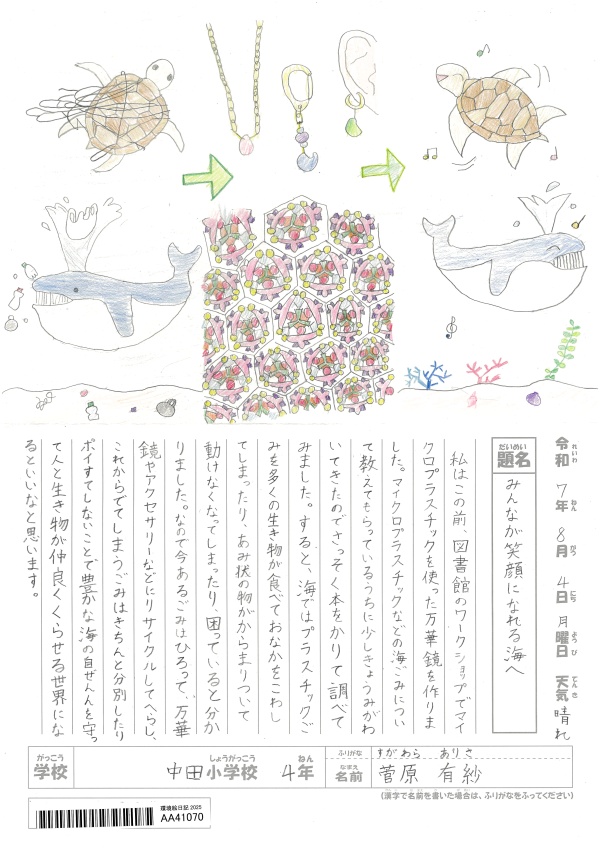 令和 7年 8月 4日 月曜日 天気 晴れ
れいわ ねん がつ にち ようび てんき
だいめい
題名 みんなが笑顔になれる海へ
私はこの前、図書館のワークショップでマイ
クロプラスチックを使った万華鏡を作りま
した。マイクロプラスチックなどの海ごみについ
て教えてもらっているうちに少しきょうみがわ
いてきたのでさっそく本をかりて調べて
みました。すると、海ではプラスチックご
みを多くの生き物が食べておなかをこわし
てしまったり、あみ状の物がからまりついて
動けなくなってしまったり、困っていると分か
りました。なので今あるごみはひろって、万華
鏡やアクセサリーなどにリサイクルしてへらし、
これからでてしまうごみはきちんと分別したり
ポイすてしないことで豊かな海の自ぜんを守っ
て人と生き物が仲良くくらせる世界にな
るといいなと思います。
がっこう しょうがっこう ねん ふりがな すがわら ありさ
学校 中田小学校 4年 なまえ 名前 菅原 有紗
(漢字で名前を書いた場合は、ふりがなをふってください)
環境絵日記2025
AA41070